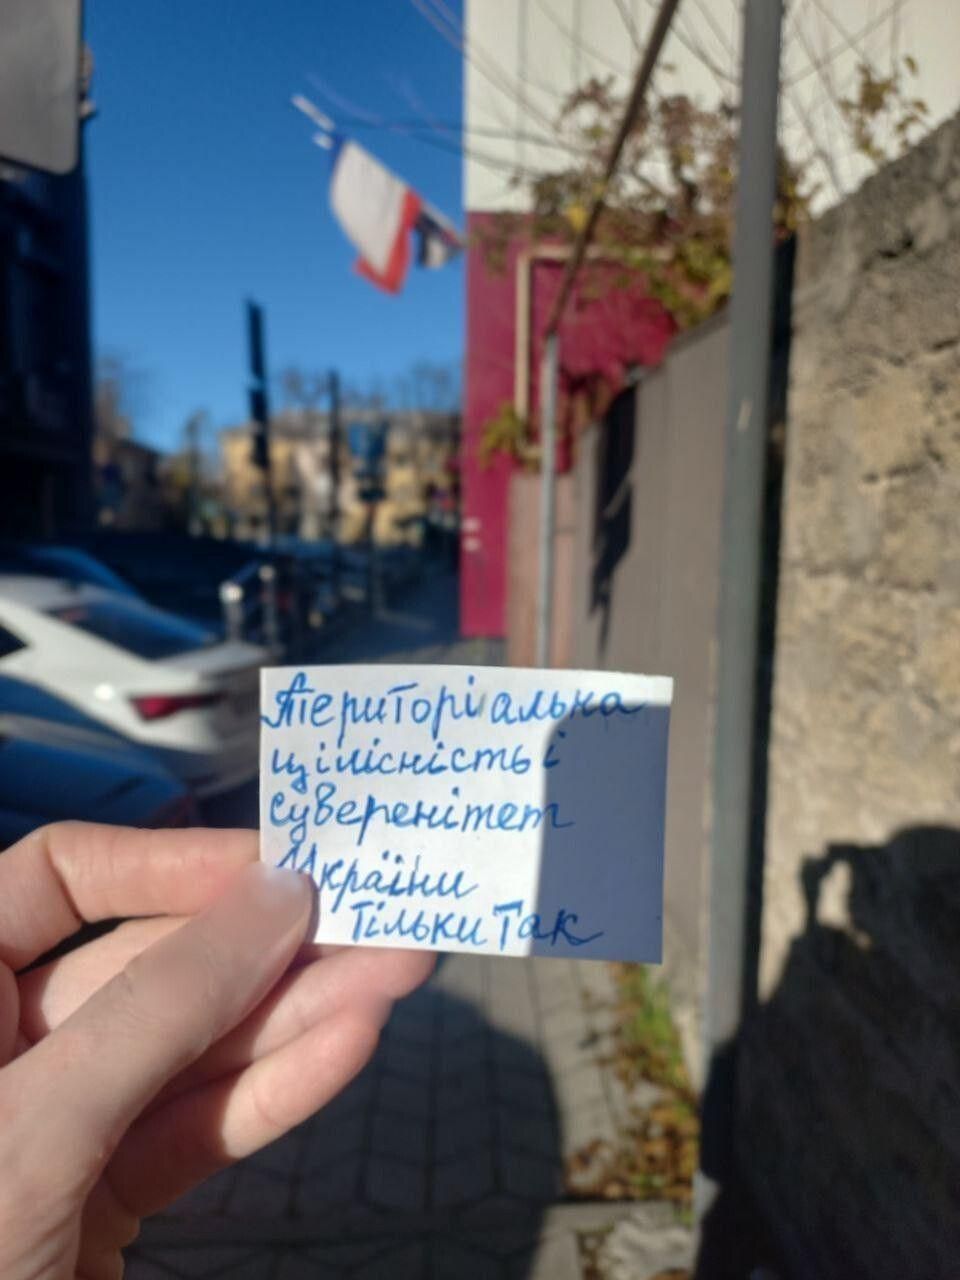 Територіальна
цілісність і
суверенітет
України
Тільки Так